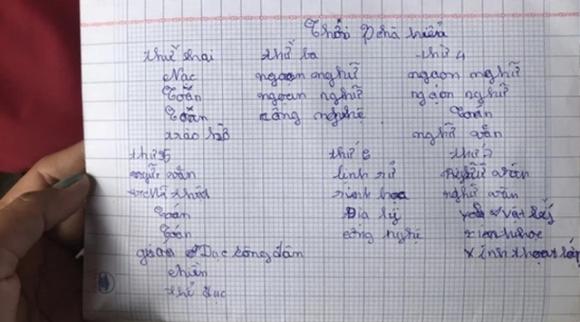 Thời
thứ hai thứ ba thứ 4
Nhạc ngoại ngữ ngoại ngữ
Toán ngoại ngữ ngoại ngữ
Toán công nghệ Toán
ngữ văn
thứ 5 thứ 6 thứ 7
ngữ văn lịch sử ngữ văn
sinh học ngữ văn
toán Địa lý vật lý
toán công nghệ sinh học
giáo Dục công dân sinh hoạt lớp
chiều
thể dục